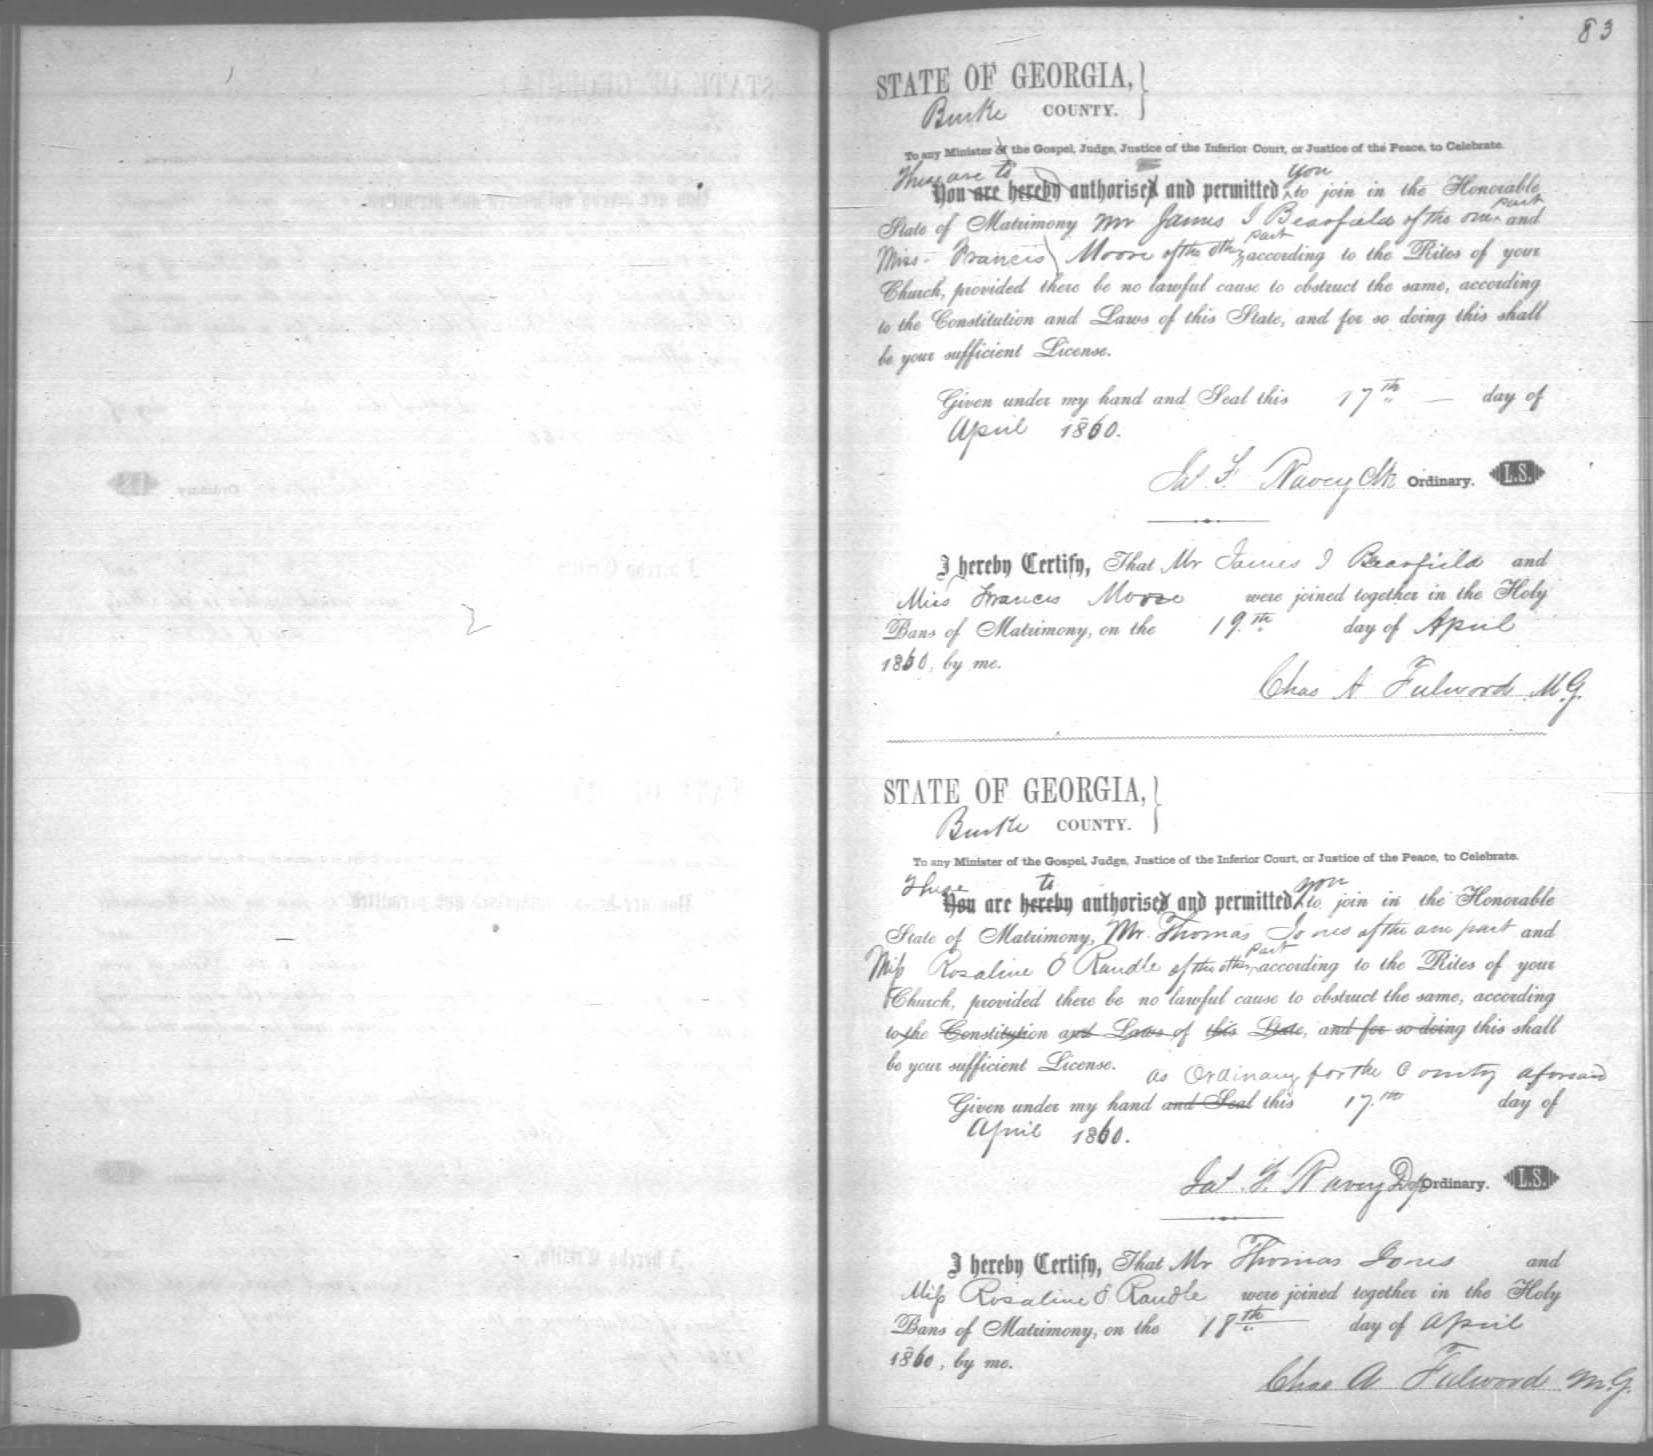 83
STATE OF GEORGIA,
Burke COUNTY.
To any Minister of the Gospel, Judge, Justice of the Inferior Court, or Justice of the Peace, to Celebrate.
These are to you
You are hereby authorised and permitted to join in the Honorable
part
State of Matrimony Mr James I Bearfield of the one and
part
Miss Francis Moore of the other according to the Rites of your
Church, provided there be no lawful cause to obstruct the same, according
to the Constitution and Laws of this State, and for so doing this shall
be your sufficient License.
Given under my hand and Seal this 17th — day of
April 1860.
Jas. F. Navey Clk Ordinary. L.S.
I hereby Certify, That Mr James I Bearfield and
Miss Francis Moore were joined together in the Holy
Bans of Matrimony, on the 19.th day of April
1860, by me.
Chas A Fulwood M.G.
STATE OF GEORGIA,
Burke COUNTY.
To any Minister of the Gospel, Judge, Justice of the Inferior Court, or Justice of the Peace, to Celebrate.
These to you
You are hereby authorised and permitted to join in the Honorable
State of Matrimony, Mr. Thomas Jones of the one part and
part
Miss Rosaline O Randle of the other according to the Rites of your
Church, provided there be no lawful cause to obstruct the same, according
to the Constitution and Laws of this State, and for so doing this shall
be your sufficient License.
as Ordinary for the County aforsaid
Given under my hand and Seal this 17.th day of
April 1860.
Jas. F. Navey Dep Ordinary. L.S.
I hereby Certify, That Mr Thomas Jones and
Miss Rosaline O Randle were joined together in the Holy
Bans of Matrimony, on the 18th day of April
1860, by me.
Chas A Fulwood M.G.